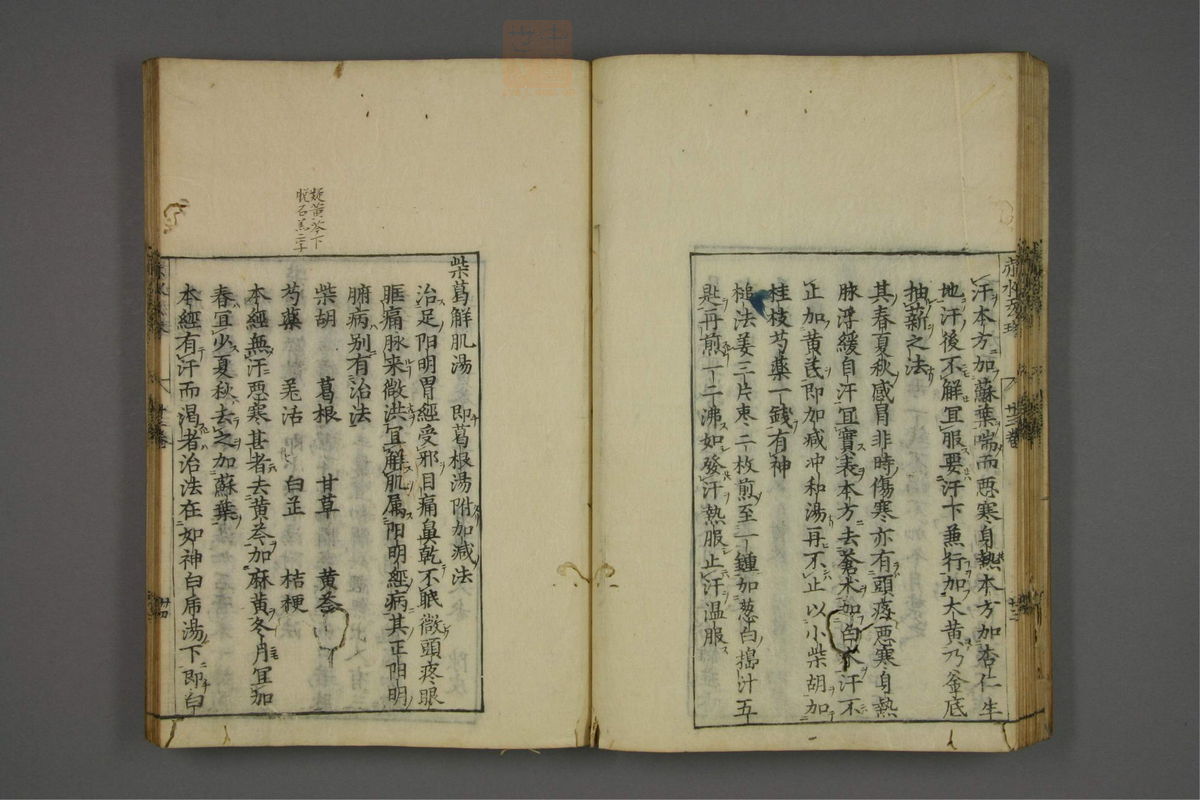 汗本方加蘇葉喘而悪寒身熱本方加杏仁生
地汗後不解宜服要汗下兼行加大黄乃釜底
抽薪之法
其春夏秋感冒非時傷寒亦有頭疼悪寒身熱
脉浮緩自汗宜實表本方去蒼朮加白朮汗不
止加黄芪即加减冲和湯再不止以小柴胡加
桂枝芍藥一錢有神
槌法姜三片枣二枚煎至一鍾加葱白搗汁五
匙再煎一二沸如發汗熱服止汗温服
柴葛解肌湯 即葛根湯附加减法
治足阳明胃經受邪目痛鼻乾不眠微頭疼眼
眶痛脉来微洪宜解肌属阳明經病其正阳明
腑病别有治法
柴胡 葛根 甘草 黄芩
芍藥 羌活 白芷 桔梗
本經無汗悪寒甚者去黄芩加麻黄冬月宜加
春宜少夏秋去之加蘇葉
本經有汗而渴者治法在如神白帍湯下即白
疑黄芩下
脱石羔二字
廿三巻
廿四